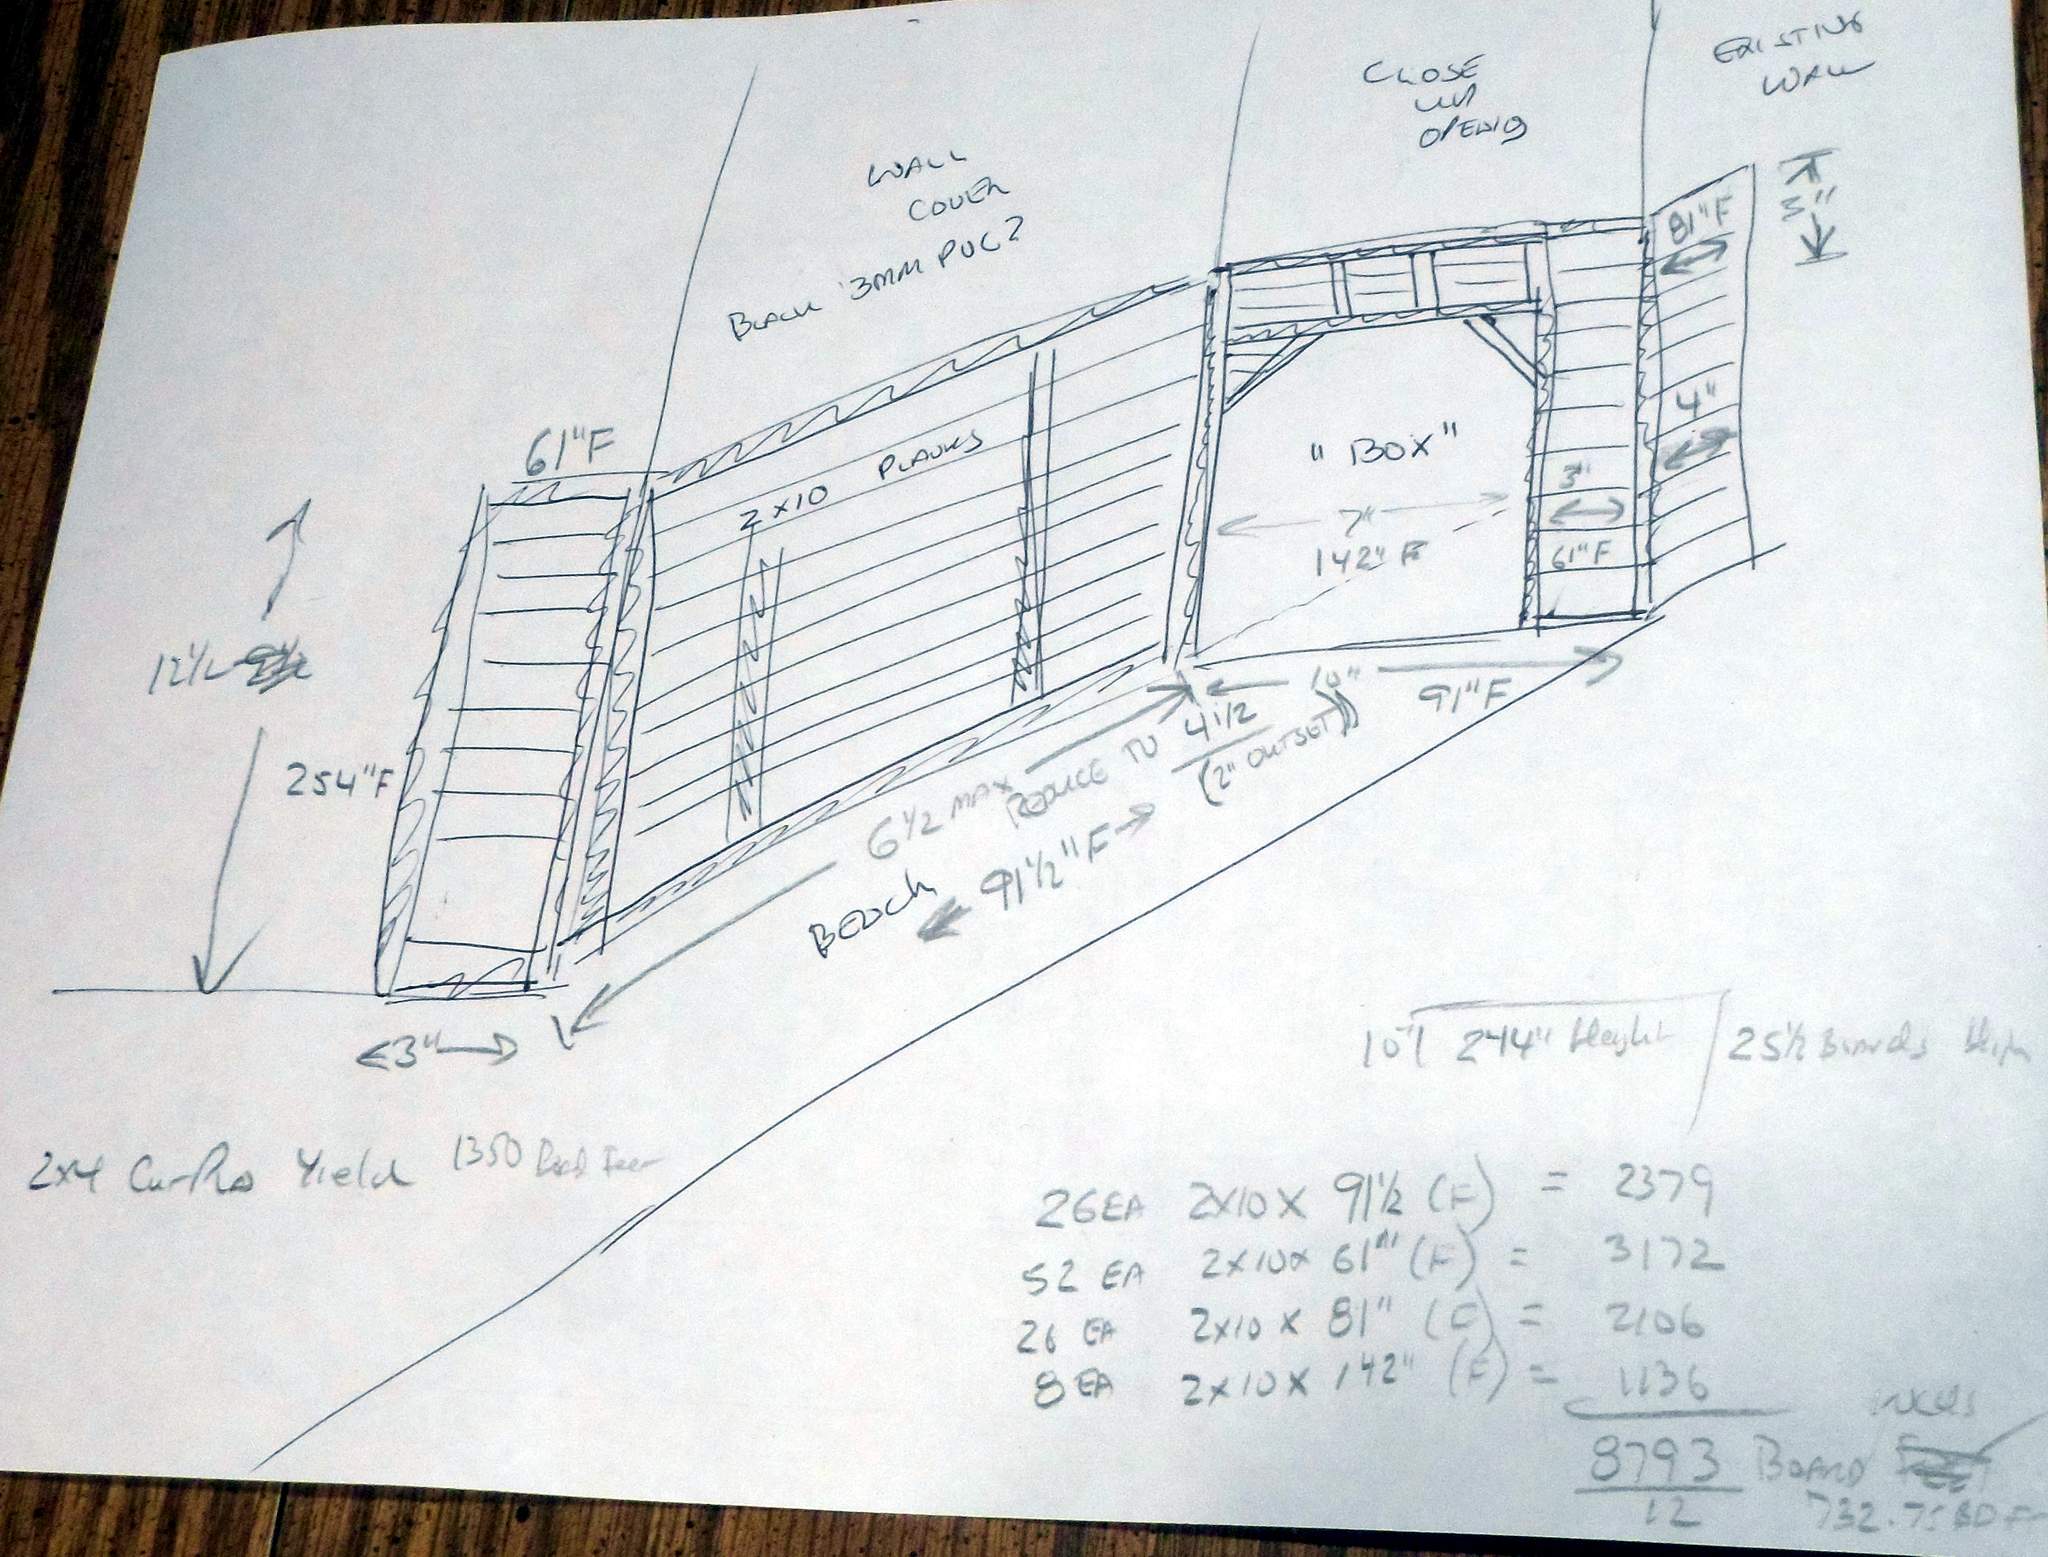 EXISTING
WALL
CLOSE
UP
OPENIG
WALL
COVER
BLACK 3MM PVC?
81"F
3"
61"F
2X10 PLANKS
"BOX"
4"
3"
7"
142" F
61"F
12 1/2
254"F
10"
91"F
6 1/2 MAX REDUCE TO 4 1/2
(2" OUTSET)
BENCH
91 1/2" F
3"
244" Height
25 1/2 Boards High
2x4 Yield 1350
26 EA 2x10 x 91 1/2 (F) = 2379
52 EA 2x10x 61" (F) = 3172
26 EA 2x10 x 81" (F) = 2106
8 EA 2x10x 142" (F) = 1136
INCHES
8793 BOARD
12
732.75 BD